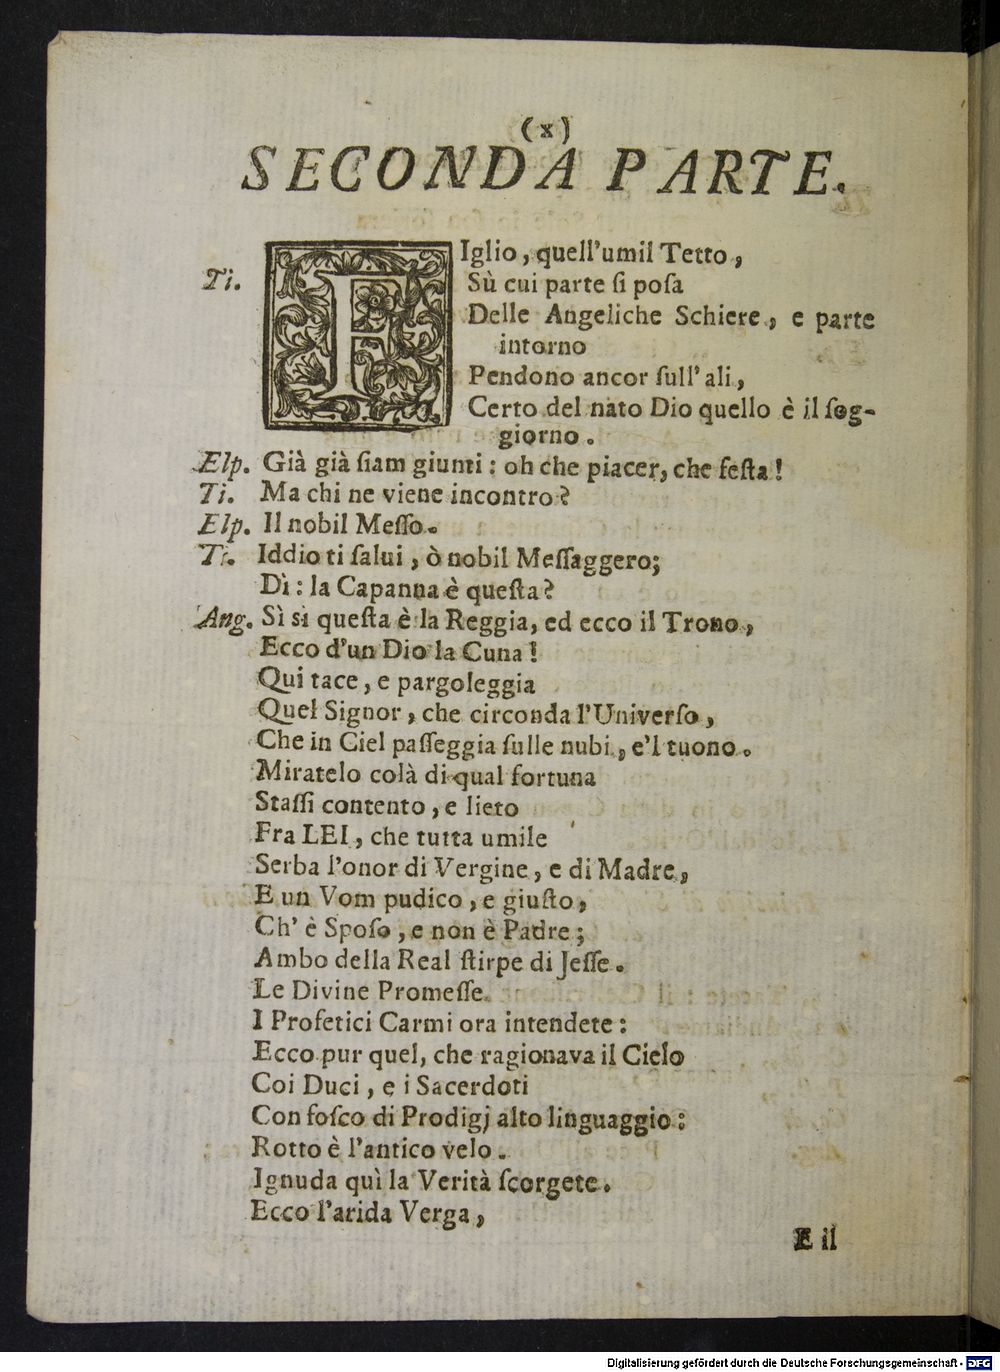 (x)
SECONDA PARTE.
Ti. FIglio, quell'umil Tetto,
Sù cui parte ſi poſa
Delle Angeliche Schiere, e parte
intorno
Pendono ancor ſull' ali,
Certo del nato Dio quello è il ſog-
giorno.
Elp. Già già ſiam giunti: oh che piacer, che feſta!
Ti. Ma chi ne viene incontro?
Elp. Il nobil Meſſo.
Ti. Iddio ti ſalui, ò nobil Meſſaggero;
Dì: la Capanna è queſta?
Ang. Sì sì queſta è la Reggia, ed ecco il Trono,
Ecco d'un Dio la Cuna!
Qui tace, e pargoleggia
Quel Signor, che circonda l'Univerſo,
Che in Ciel paſſeggia ſulle nubi, e'l tuono.
Miratelo colà di qual fortuna
Staſſi contento, e lieto
Fra LEI, che tutta umile
Serba l'onor di Vergine, e di Madre,
E un Vom pudico, e giuſto,
Ch' è Spoſo, e non è Padre;
Ambo della Real ſtirpe di Jeſſe.
Le Divine Promeſſe
I Profetici Carmi ora intendete:
Ecco pur quel, che ragionava il Cielo
Coi Duci, e i Sacerdoti
Con foſco di Prodigj alto linguaggio:
Rotto è l'antico velo.
Ignuda quì la Verità ſcorgete.
Ecco l'arida Verga,
E il
Digitalisierung gefördert durch die Deutsche Forschungsgemeinschaft - DFG